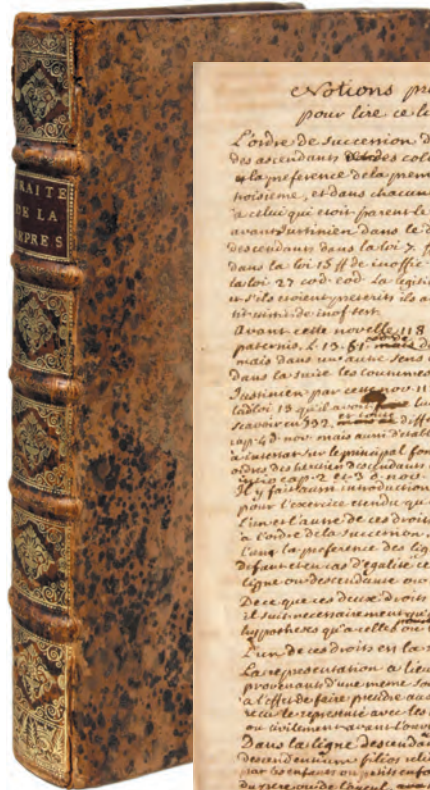 TRAITE
DE LA
REPRES
Notions pre
pour lire ce li
L'ordre de succession d
des ascendants des col
& la preference de la prem
troisieme, et dans chacun
a celui qui etoit parent le
avant Justinien dans le d
descendants dans la loi 7. ff
dans la loi 15 ff de inoffic
la loi 27 cod. eod. La legiti
et s'ils etoient preterits ils a
de inof test.
avant cette novelle 118
paternis. L. 13. §1. de
mais dans un autre sens
dans la suite les coutumes
Justinien par cette nov. 11
ladite loi 13 qu'il avoit
scavoir en 532. diff
cap. 4 d. nov. mais aussi d'etabl
a intestat sur le principal fon
ordres des heritiers descendants
cap. 2 et 3 d. nov.
Il y fait aussi introduction
pour l'exercice etendu qu
L'un et l'autre de ces droits
a l'ordre de la succession.
L'un la preference des lig
defaut et en cas d'egalité ce
ligne ou descendante ou
De ce que ces deux droits
il suit necessairement qu'
hypotheses qu'a celles ou
L'un de ces droits est la r
La representation a lieu
provenants d'une meme so
a l'effet de faire prendre aux
le representé avec les
ou civilement avant l'ouv
Dans la ligne descenda
descendentium filios reli
par les enfants ou petits enfa
du